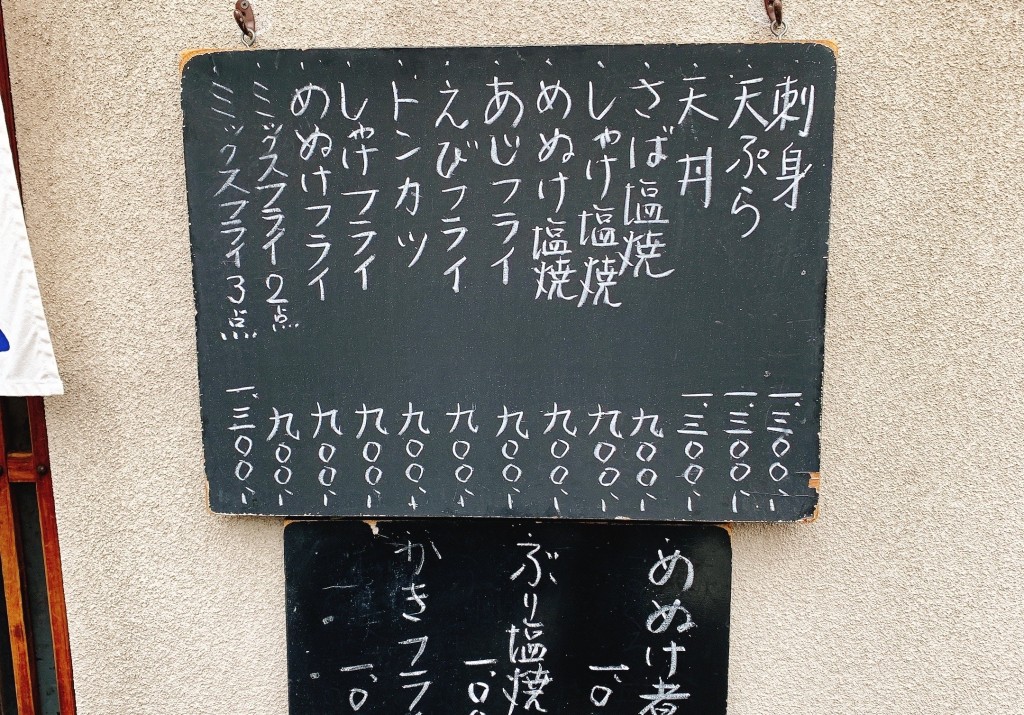 刺身 一、三〇〇、
天ぷら 一、三〇〇、
天丼 一、三〇〇、
さば塩焼 九〇〇、
しゃけ塩焼 九〇〇、
めぬけ塩焼 九〇〇、
あじフライ 九〇〇、
えびフライ 九〇〇、
トンカツ 九〇〇、
しゃけフライ 九〇〇、
めぬけフライ 九〇〇、
ミックスフライ2点 九〇〇、
ミックスフライ3点 一、三〇〇、
めぬけ煮
一、〇
ぶり塩焼
一、〇
かきフライ
一、〇